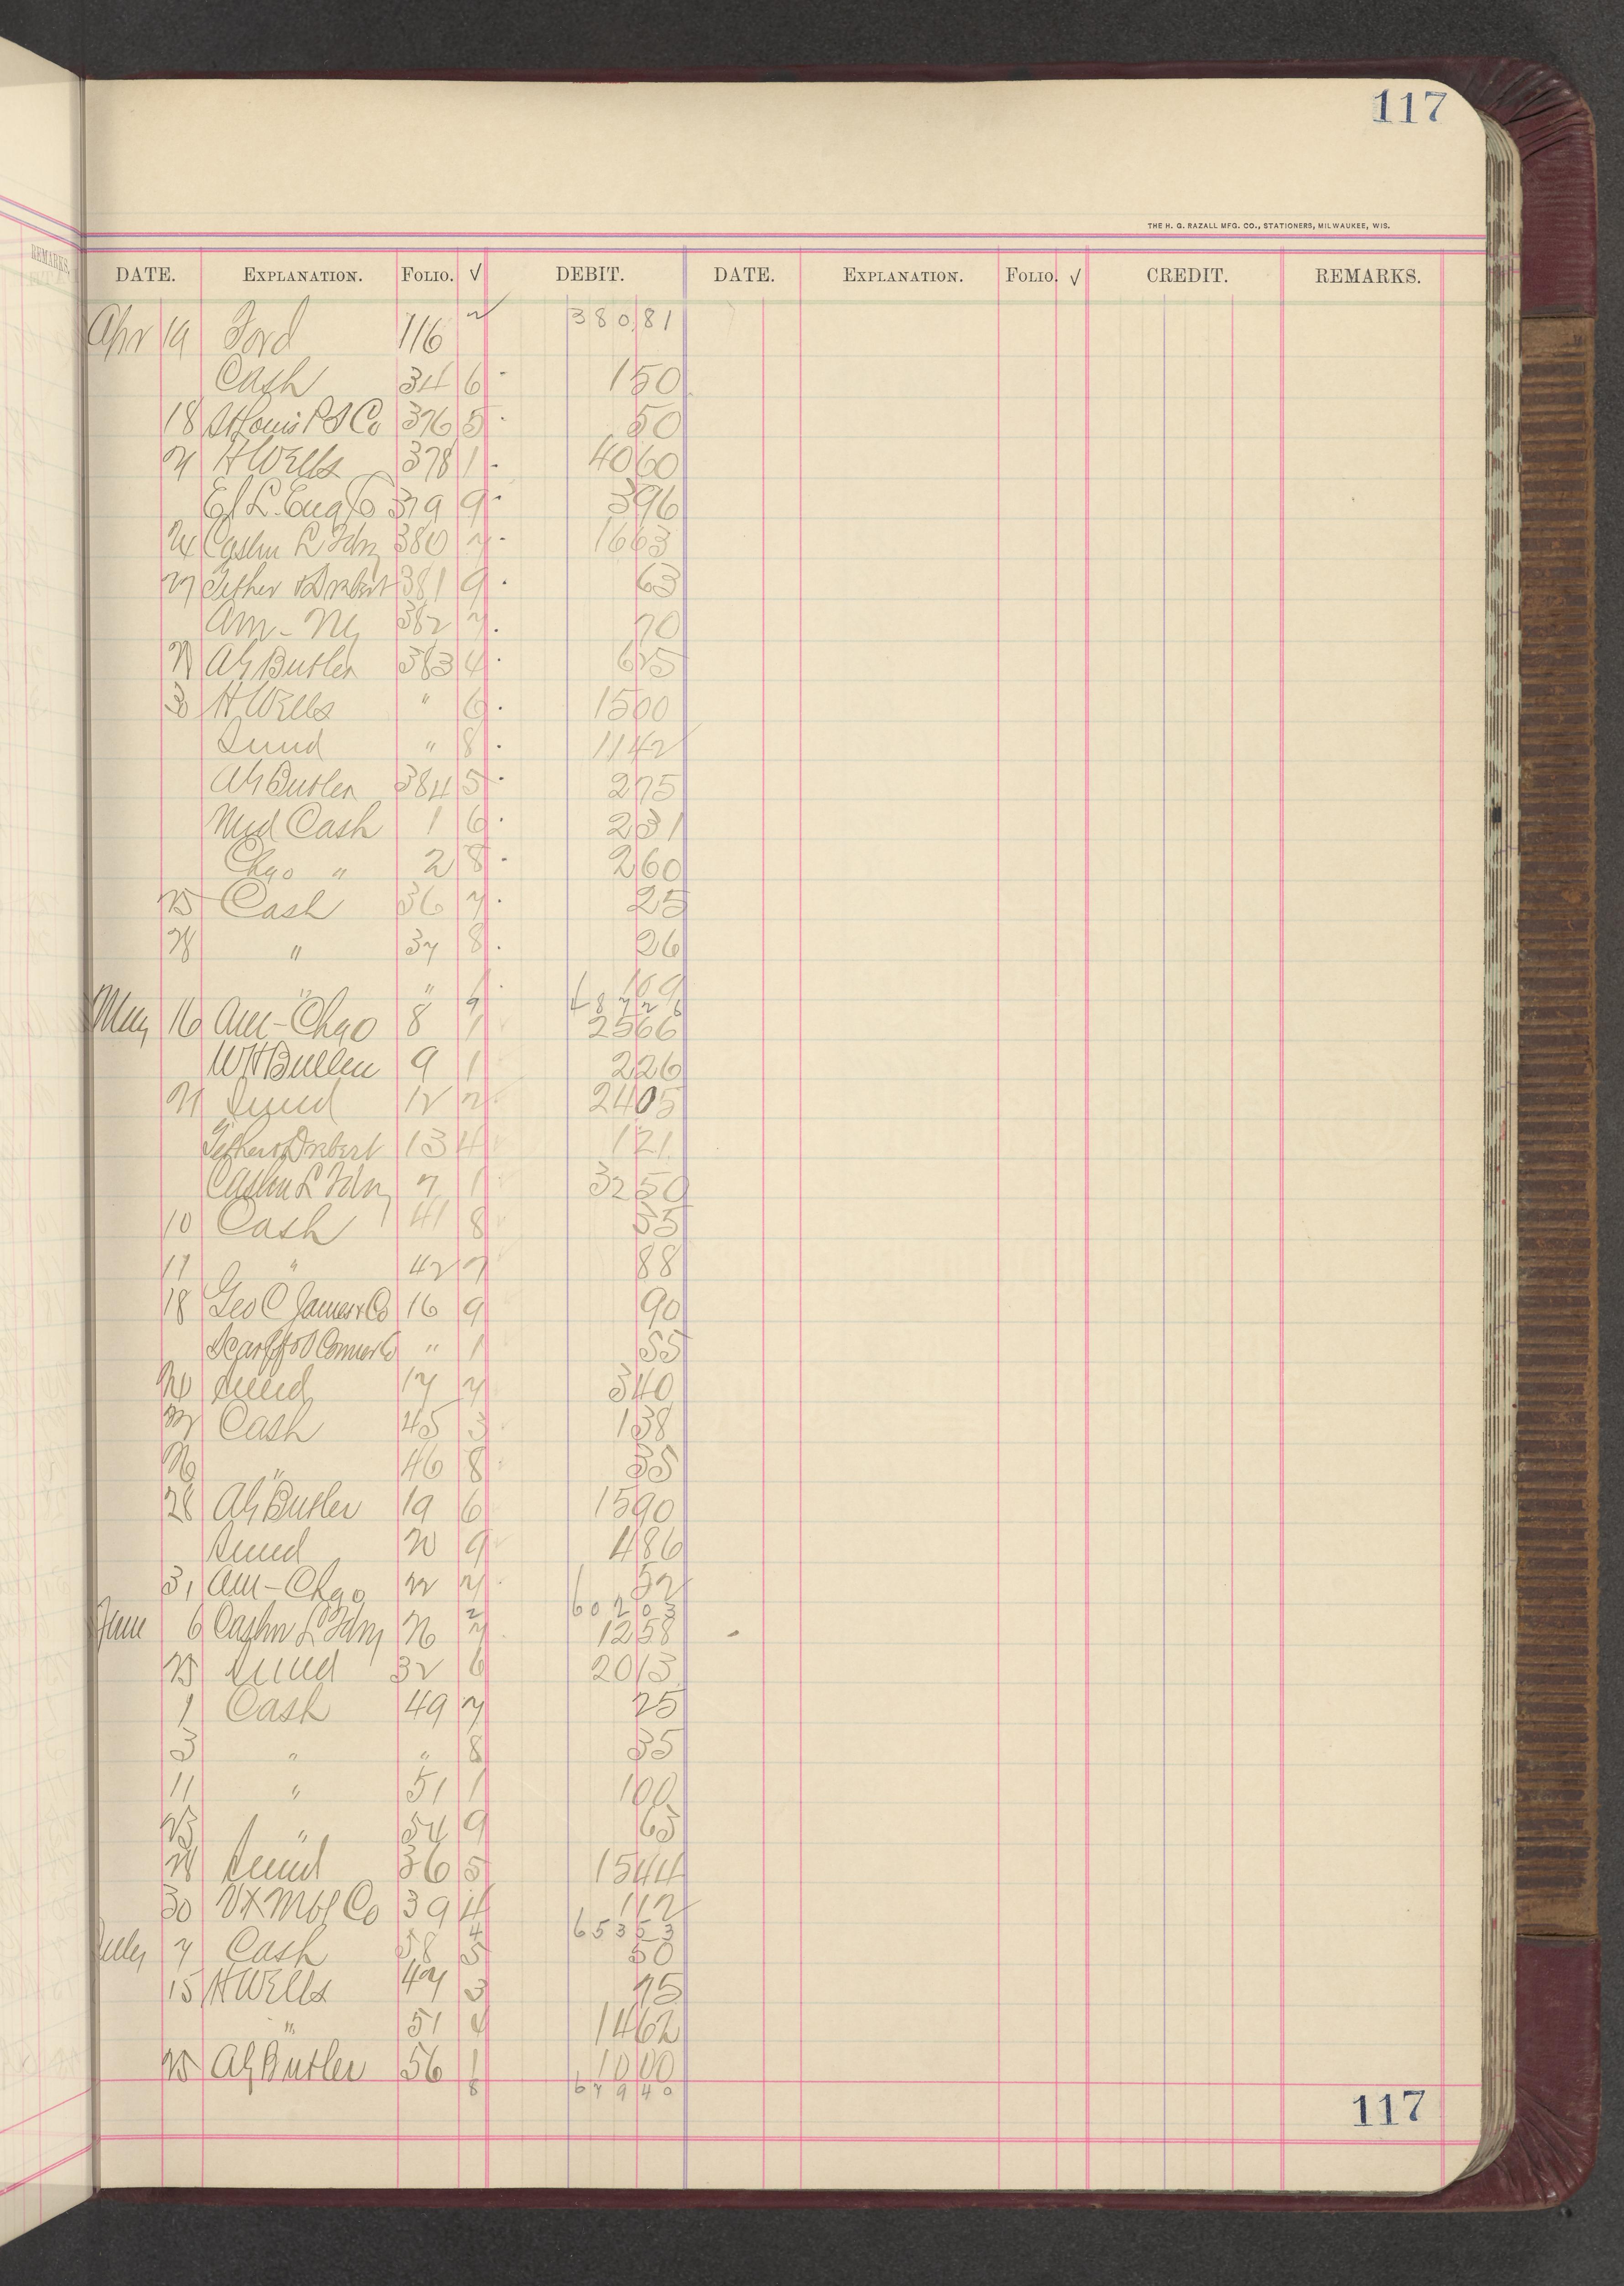 117
THE H. G. RAZALL MFG. CO., STATIONERS, MILWAUKEE, WIS.
REMARKS.
DATE. EXPLANATION. FOLIO. √ DEBIT. DATE. EXPLANATION. FOLIO. √ CREDIT. REMARKS.
Apr 19 Ford 116 2 380 81
Cash 34 6 1 50
18 St Louis P S Co 376 5 50
21 H Wells 378 1 40 60
E L Eng Co 379 9 3 96
24 Cashn L Fdry 380 7 16 63
27 381 9 63
Am - Ny 382 7 70
28 AG Butler 383 4 6 25
30 H Wells " 6 15 00
Sund " 8 11 42
AG Butler 384 5 2 75
Md Cash 1 6 2 31
Chgo " 2 8 2 60
25 Cash 36 7 25
28 " 37 8 26
" " 1 1 69
9 487 26
May 16 Am - Chgo 8 1 25 66
WH Bullen 9 1 2 26
21 Sund 12 2 24 05
13 4 1 21
Cashn L Fdry 7 1 32 50
10 Cash 41 8 35
17 " 42 7 88
18 Geo C James & Co 16 9 90
Scarff & O'Connor Co " 1 55
20 Sund 17 7 3 40
22 Cash 45 3 1 38
26 " 46 8 35
28 AG Butler 19 6 15 90
Sund 20 9 4 86
31 Am - Chgo 22 7 52
2 602 03
June 6 Cashn L Fdry 26 7 12 58
25 Sund 32 6 20 13
1 Cash 49 7 25
3 " " 8 35
11 " 51 1 1 00
23 " 54 9 63
28 Sund 36 5 15 44
30 Mfg Co 39 4 1 12
4 653 53
July 7 Cash 58 5 50
15 H Wells 47 3 75
" 51 4 14 62
25 AG Butler 56 1 10 00
8 679 40
117